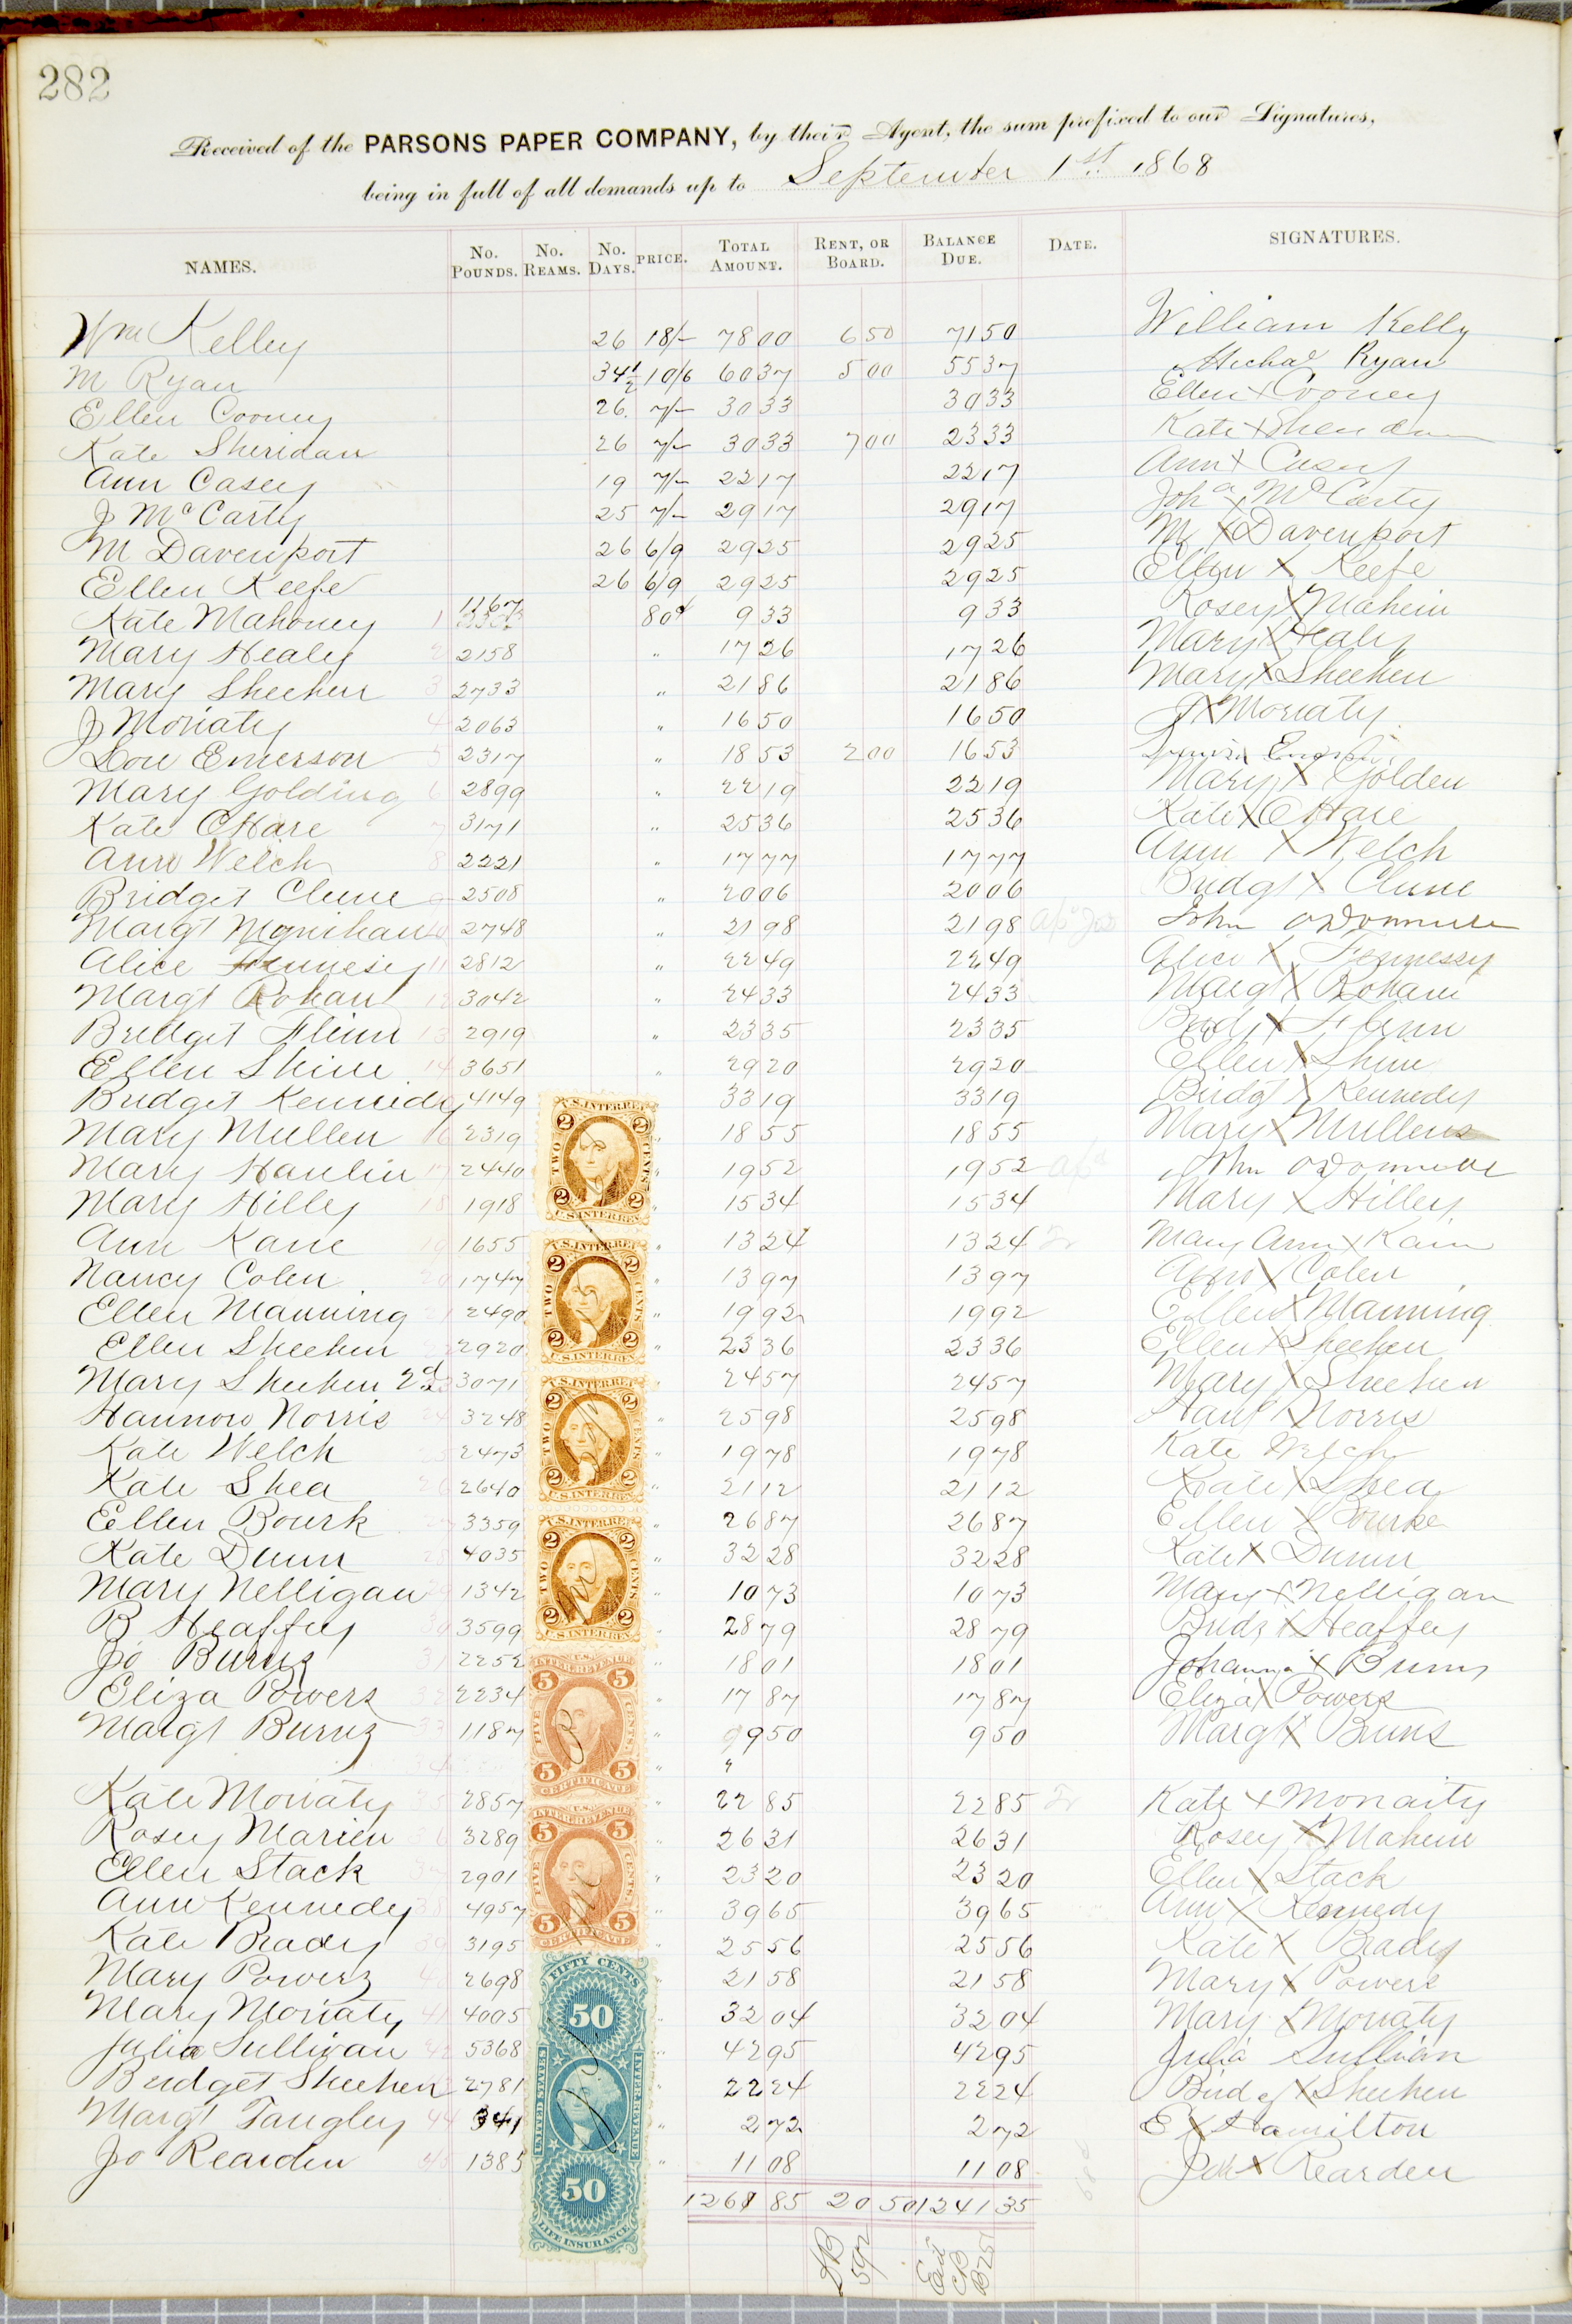 282
Received of the PARSONS PAPER COMPANY, by their Agent, the sum prefixed to our Signatures,
being in full of all demands up to September 1st. 1868
NAMES. No. Pounds. No. Reams. No. Days. PRICE. Total Amount. Rent, or Board. Balance Due. Date. SIGNATURES.
Wm Kelley 26 18/- 78 00 6 50 71 50 William Kelly
M Ryan 34 1/2 10/6 60 37 5 00 55 37 Michal Ryan
Ellen Cooney 26 7/- 30 33 30 33 Ellen X Cooney
Kate Sheridan 26 7/- 30 33 7 00 23 33 Kate X Sheridan
Ann Casey 19 7/- 22 17 22 17 Ann X Casey
J McCarty 25 7/- 29 17 29 17 Joha X McCarty
M Davenport 26 6/9 29 25 29 25 M X Davenport
Ellen Keefe 26 6/9 29 25 29 25 Ellen X Keefe
Kate Mahoney 1 1167 80 9 33 9 33 Rosey X Mahein
Mary Healey 2 2158 " 17 26 17 26 Mary X Healy
Mary Sheehen 3 2733 " 21 86 21 86 Mary X Sheehen
J Moriaty 4 2063 " 16 50 16 50 J X Moriaty
Lou Emerson 5 2317 " 18 53 2 00 16 53
Mary Golding 6 2899 " 22 19 22 19 Mary X Golden
Kate OHare 7 3171 " 25 36 25 36 Kate X OHare
Ann Welch 8 2221 " 17 77 17 77 Ann X Welch
Bridget Clune 9 2508 " 20 06 20 06 Bridgt X Clune
Margt Moynihan 10 2748 " 21 98 21 98 John ODonnell
Alice Fennesey 11 2812 " 22 49 22 49 Alice X Fennessy
Margt Rohan 12 3042 " 24 33 24 33 Margt X Rohane
Bridget Flinn 13 2919 " 23 35 23 35 Bridt X Flinn
Ellen Shine 14 3651 " 29 20 29 20 Ellen X Shine
Bridget Kennedy 4149 33 19 33 19 Bridgt X Kennedy
Mary Mullen 16 2319 " 18 55 18 55 Mary X Mullens
Mary Hanlin 17 2440 " 19 52 19 52 John ODonnell
Mary Hilley 18 1918 " 15 34 15 34 Mary X Hilley
Ann Kane 19 1655 " 13 24 13 24 Mary Ann X Kain
Nancy Colen 20 1747 " 13 97 13 97 X Colen
Ellen Manning 21 2490 " 19 92 19 92 Ellen X Manning
Ellen Sheehen 22 2920 " 23 36 23 36 Ellen X Sheehen
Mary Sheehen 2d 23 3071 " 24 57 24 57 Mary X Sheehen
Hannow Norris 24 3248 " 25 98 25 98 Han X Norris
Kate Welch 25 2473 " 19 78 19 78 Kate Welch
Kate Shea 26 2640 " 21 12 21 12 Kate X Shea
Ellen Bourk 27 3359 " 26 87 26 87 Ellen X Bourke
Kate Dunn 28 4035 " 32 28 32 28 Kate X Dunn
Mary Nelligan 29 1342 " 10 73 10 73 Mary X Nelligan
B Heaffey 30 3599 " 28 79 28 79 Bridg X Heaffey
Jo Burns 31 2252 " 18 01 18 01 Johanna X Burns
Eliza Powers 32 2234 " 17 87 17 87 Eliza X Powers
Margt Burns 33 1187 " 9 50 9 50 Margt X Burns
34 " "
Kate Moriaty 35 2857 " 22 85 22 85 Kate X Moriarity
Rosey Marien 36 3289 " 26 31 26 31 Rosey X Mahein
Ellen Stack 37 2901 " 23 20 23 20 Ellen X Stack
Ann Kennedy 38 4957 " 39 65 39 65 Ann X Kennedy
Kate Brady 39 3195 " 25 56 25 56 Kate X Brady
Mary Powers 40 2698 " 21 58 21 58 Mary X Powers
Mary Moriaty 41 4005 " 32 04 32 04 Mary X Moriaty
Julia Sullivan 42 5368 " 42 95 42 95 Julia Sullivan
Bridget Sheehen 2781 " 22 24 22 24 Bridg X Sheehen
Margt Tangley 44 341 " 2 72 2 72 E X Hamilton
Jo Rearden 45 1385 " 11 08 11 08 Joh X Rearden
1261 85 20 50 1241 35
U.S. INTER. REV.
2 2
TWO CENTS
2 2
U.S. INTER. REV.
U.S. INTER. REV.
2 2
TWO CENTS
2 2
U.S. INTER. REV.
U.S. INTER. REV.
2 2
TWO CENTS
2 2
U.S. INTER. REV.
U.S. INTER. REV.
2 2
TWO CENTS
2 2
U.S. INTER. REV.
U.S.
INTER. REVENUE
5 5
FIVE CENTS
5 5
CERTIFICATE
U.S.
INTER. REVENUE
5 5
FIVE CENTS
5 5
CERTIFICATE
FIFTY CENTS
50
UNITED STATES INTER. REVENUE
50
LIFE INSURANCE